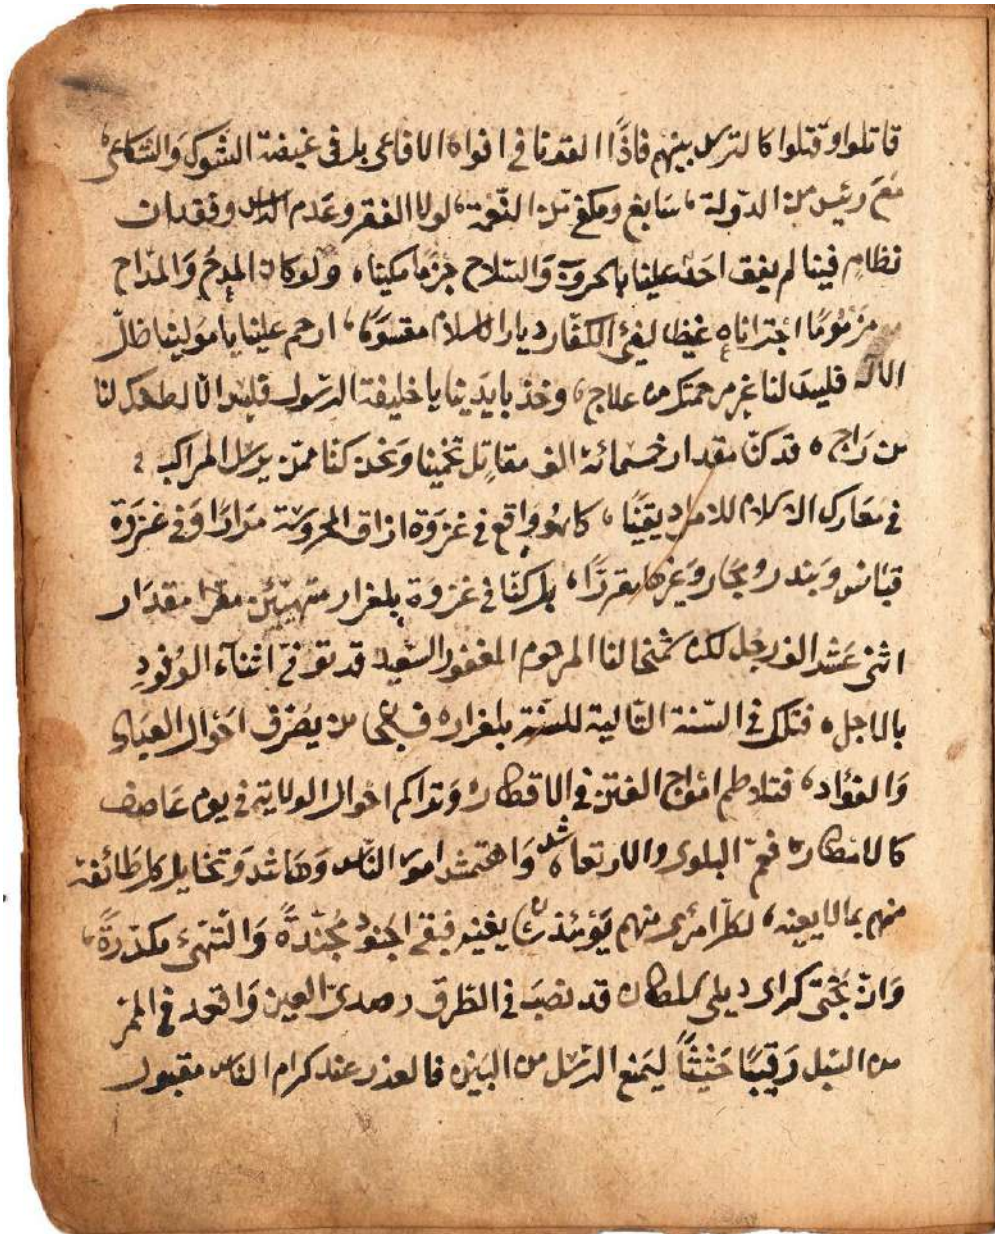 قاتلوا وقتلوا كالترك بينهم فاذًا القونا في افواه الافاعى بل في غيضة الشوك والشكاعى
مع رئيس من الدولة، سابغ ومكفى من النعمة، لولا الفقر وعدم الناس وفقدان
نظام فينا لم يفق احد علينا بالحروب والسلاح جزما مكينا، ولو كان المدح والمداح
اجترانا، غيظا لفئ الكفار ديار الاسلام مقسوما، ارحم علينا يا مولينا ظل
الاله فليس لنا غير مرحمتك من علاج، وخذ بايدينا يا خليفة الرسول فليس الا لطفك لنا
من راج، قد كنا مقدار خمسمائة الف مقاتل تخمينا ونحن كنا ممن يرسل المراكب
في معارك الاسلام للامداد يقينًا، كما هو واقع في غزوة ازاق المحروسة مرارًا وفي غزوة
وبندر وبجار وغيرها مقررًا، بل كنا في غزوة بلغرار متهيئين مقدار
اثنى عشر الف رجل لكن شمخالنا المرحوم المغفور السعيد قد توفى اثناء الوفود
بالاجل، فتلك في السنة التالية للسنة بلغراد، من يصرف احوال العباد
والفؤاد، فتلاطم امواج الفتن في الاقطار، وتراكم احوال الولاية في يوم عاصف
كالامطار، فعم البلوى والارتعاش، الناس وتخايل كل طائفة
منهم بما لا يعينه، لكل امرئ منهم يومئذ شان يغنيه فبقى الجنود مجندة والتهيئ مكدرة،
وان كراى السلطان قد نصب في الطرق رصدى العين واقعد في الممر
من السبل رقيبًا حثيثًا ليمنع الرسل من البين، فالعذر عند كرام الناس مقبول